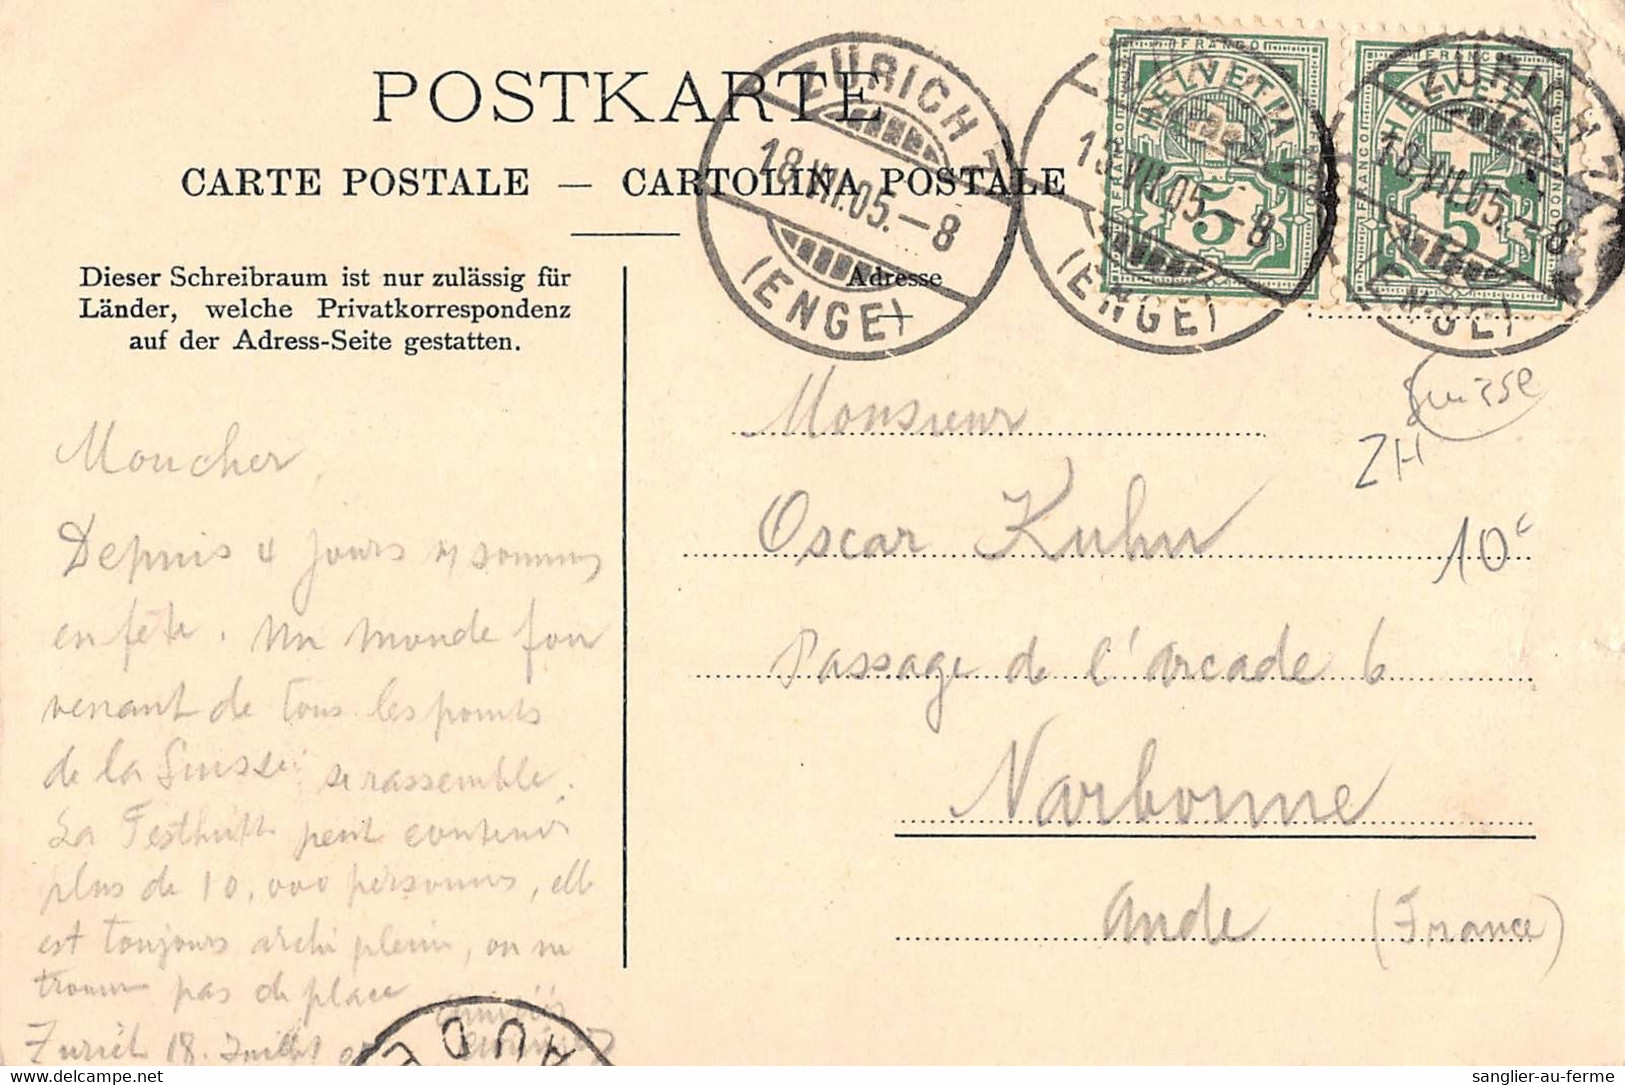 POSTKARTE
CARTE POSTALE — CARTOLINA POSTALE
Dieser Schreibraum ist nur zulässig für
Länder, welche Privatkorrespondenz
auf der Adress-Seite gestatten.
Adresse
ZÜRICH 7
18.VII.05.–8
(ENGE)
FRANCO
HELVETIA
5
18.VII.05.–8
(ENGE)
FRANCO
HELVETIA
5
ZÜRICH 7
18.VII.05.–8
(ENGE)
Suisse
ZH
10c
Monsieur
Oscar Kuhn
Passage de l'arcade 6
Narbonne
Aude (France)
Moncher,
Depuis 4 jours ns sommes
en fête. Un monde fou
venant de tous les points
de la Suisse se rassemble.
La Festhütt peut contenir
plus de 10.000 personnes, elle
est toujours archi plein, on ne
trouve pas de place
Zurich 18. Juillet 05
AUDE
sanglier-au-ferme